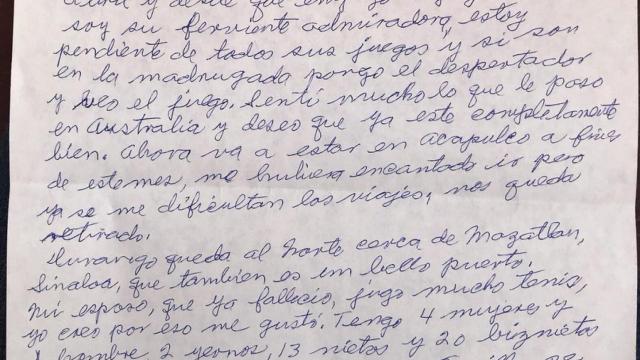 soy su ferviente admiradora, estoy
pendiente de todos sus juegos y si son
en la madrugada pongo el despertador
y veo el juego. Sentí mucho lo que le paso
en Australia y deseo que ya este completamente
bien. Ahora va a estar en Acapulco a fines
de este mes, me hubiera encantado ir pero
ya se me dificultan los viajes, nos queda
retirado.
Durango queda al Norte cerca de Mazatlan,
Sinaloa, que tambien es un bello puerto.
Mi esposo, que ya fallecio, jugo mucho tenis,
yo creo por eso me gustó. Tengo 4 mujeres y
hombre 2 yernos, 13 nietos y 20 biznietos